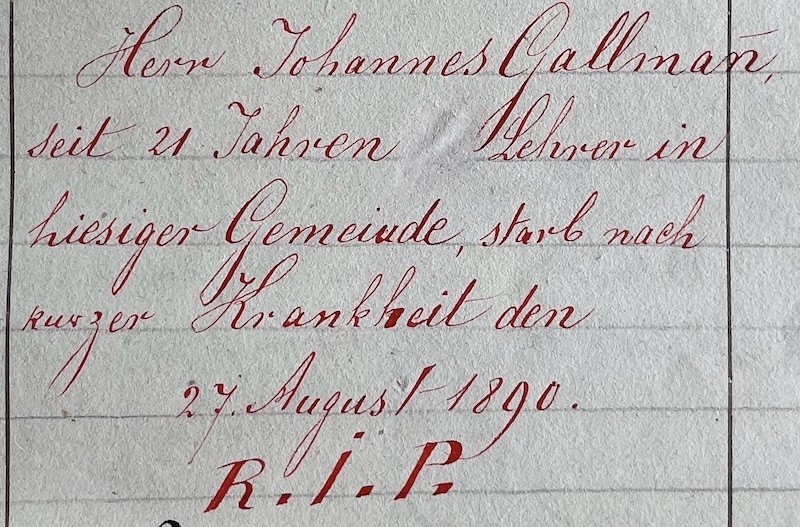 Herr Johannes Gallman̄,
seit 21 Jahren Lehrer in
hiesiger Gemeinde, starb nach
kurzer Krankheit den
27. August 1890.
R.I.P.